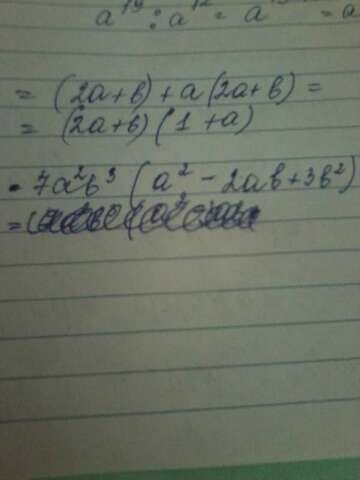 a¹⁹ : a¹² = a
= (2a+b) + a(2a+b) =
= (2a+b)(1+a)
- 7a²b³(a² - 2ab + 3b²)
=